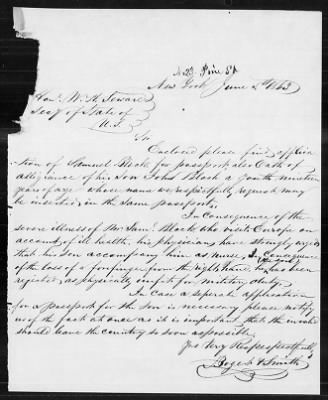 No 29 Pine St
New York June 5th 1863
Hon. W. H. Seward
Secy of State of
U.S.
Sir
Enclosed please find applica
tion of Samuel Block for passport also Oath of
allegiance of his Son John Block a youth nineteen
years of age whose name we respectfully request may
be inserted in the same passport.
In Consequence of the
severe illness of Mr Saml Block who visits Europe on
account of ill health, his physicians have strongly urged
that his son accompany him as nurse, In Consequence
of the loss of a forefinger from the right hand he has been
rejected as physically unfit for military duty.
In case a seperate application
for a passport for the Son is necessary please notify
us of the fact at once as it is important that the invalid
should leave the country as soon as possible.
Yours Very Respectfully
& Smith